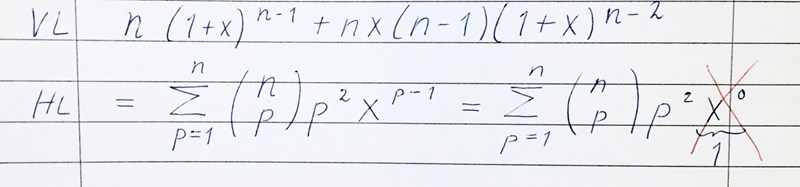 VL n (1+x)^{n-1} + nx(n-1)(1+x)^{n-2}
HL = \sum_{p=1}^{n} \binom{n}{p} p^2 x^{p-1} = \sum_{p=1}^{n} \binom{n}{p} p^2 \underbrace{x^0}_{1}